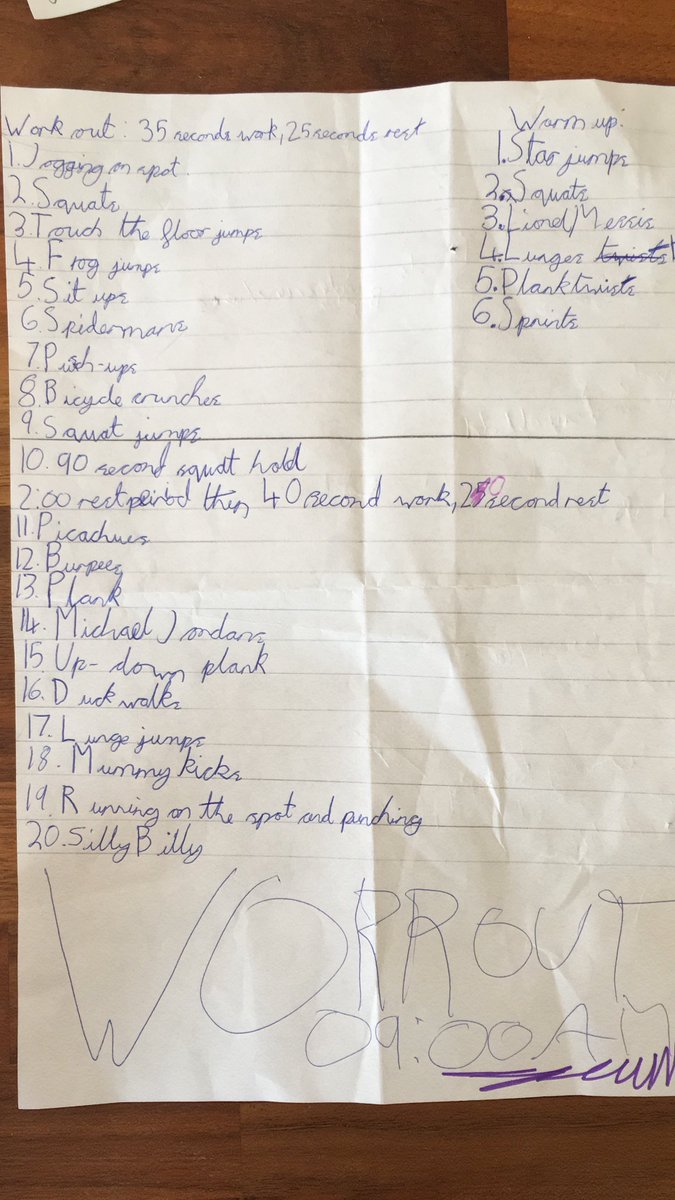 Work out: 35 seconds work, 25 seconds rest
1. Jogging on spot.
2. Squats
3. Touch the floor jumps
4. Frog jumps
5. Sit ups
6. Spidermans
7. Push-ups
8. Bicycle crunches
9. Squat jumps
10. 90 second squat hold
2:00 rest period then 40 second work, 20 second rest
11. Picachues
12. Burpees
13. Plank
14. Michael Jordans
15. Up-down plank
16. Duck walks
17. Lunge jumps
18. Mummy kicks
19. Running on the spot and punching
20. Silly Billy
Warm up.
1. Star jumps
2. Squats
3. Lionel Messis
4. Lunges twists
5. Plank twists
6. Sprints
WORROUT
09:00AM